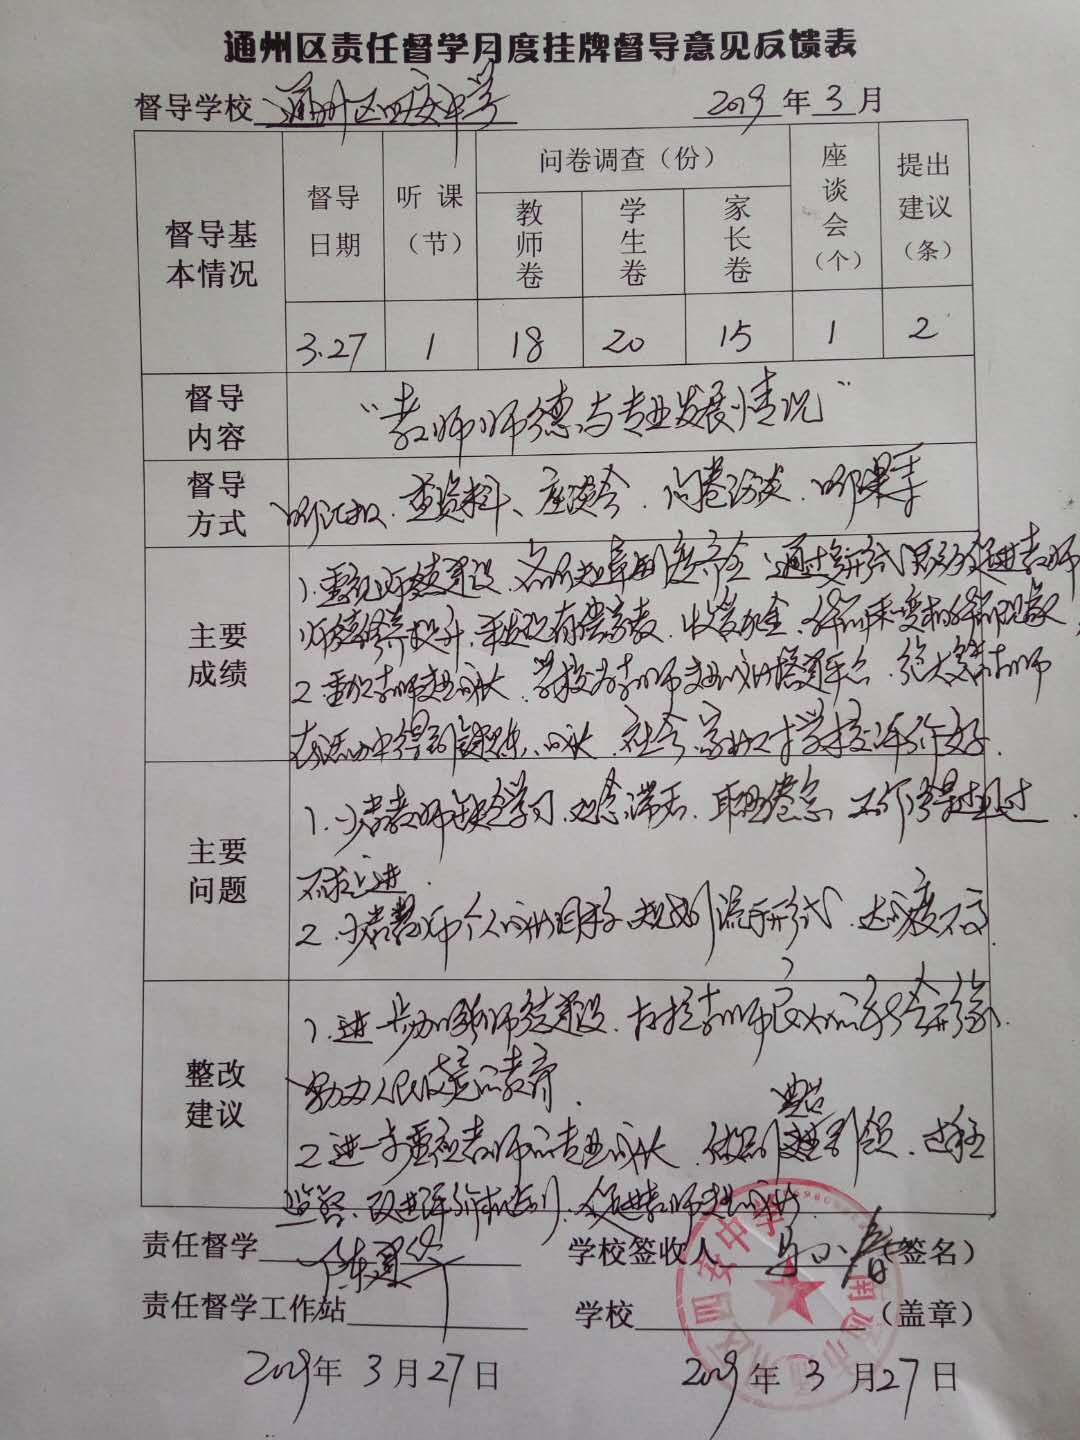 通州区责任督学月度挂牌督导意见反馈表
督导学校 通州区四安中学 2019 年 3 月
督导基本情况
督导日期 听课（节） 问卷调查（份） 教师卷 学生卷 家长卷 座谈会（个） 提出建议（条）
3.27 1 18 20 15 1 2
督导内容 “教师师德与专业发展情况”
督导方式 听汇报、查资料、座谈会、问卷访谈、听课等
主要成绩
1.重视师德建设，各项规章制度齐全，通过多种形式 促进教师
师德修养提升，未发现有偿家教、收受礼金、体罚和变相体罚现象
2.重视教师专业成长，学校为教师专业成长搭建平台，绝大多数教师
在活动中得到锻炼、成长，社会、家长对学校评价好.
主要问题
1.少数教师缺乏学习，观念滞后，职业倦怠，不求得过且过
不求上进.
2.少数教师个人成长目标规划流于形式，达成度不高.
整改建议
1.进一步加强师德建设，打造教师良好的社会形象.
努力办人民满意的教育.
典型
2.进一步重视教师的专业成长，做到 引领，过程
监督、改进评价机制，促进教师专业成长.
责任督学 学校签收人 （签名）
责任督学工作站 学校 （盖章）
2019年 3 月 27 日 2019 年 3 月 27 日
四安中学